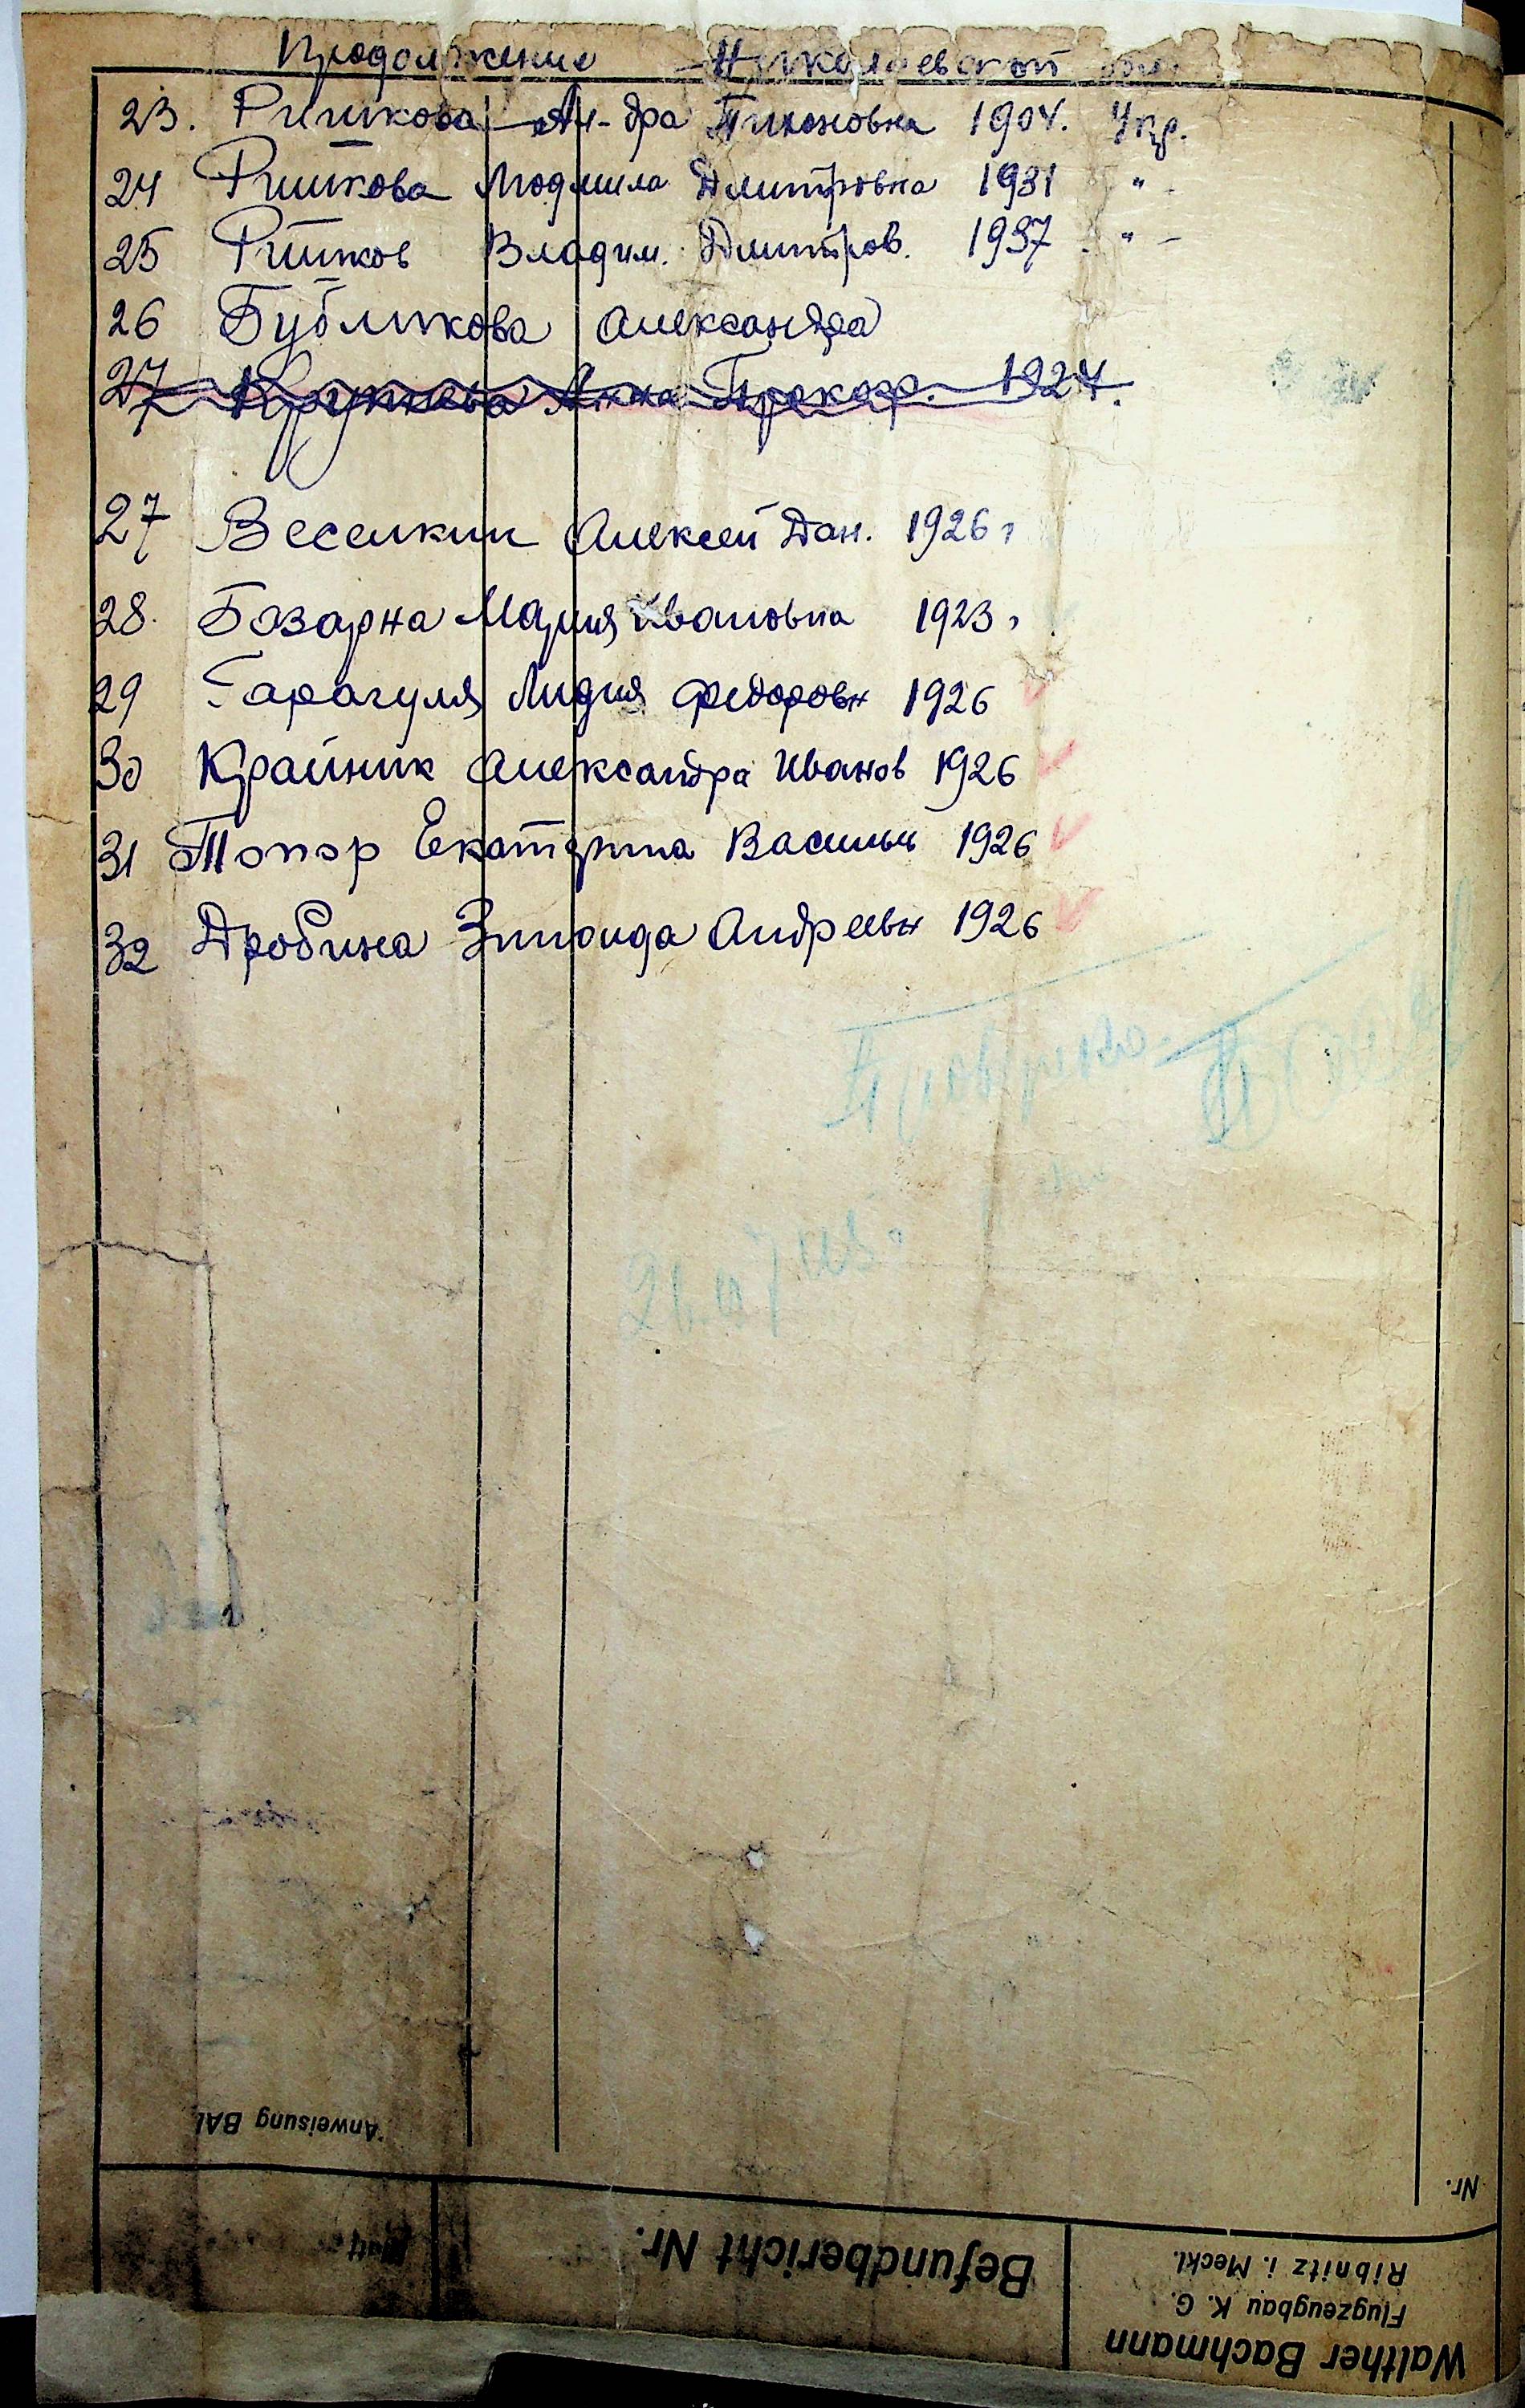 Продолжение Николаевской обл.
23. Ришкова Ал-дра Тихоновна 1904. Укр.
24 Ришкова Людмила Дмитровна 1931 " -
25 Ришков Владим. Дмитров. 1937 " -
26 Бубликова Александра
27 Анна Прокоф. 1924.
27 Веселкин Алексей Дан. 1926 г
28. Базарна Мария Ивановна 1923 г
29 Гарагуля Лидия Федоровн 1926
30 Крайник Александра Иванов 1926
31 Топор Екатерина Василь 1926
32 Дробина Зинаида Андреевн 1926
Anweisung BAL
Nr.
Blatt
Befundbericht Nr.
Walther Bachmann
Flugzeugbau K. G.
Ribnitz i. Meckl.